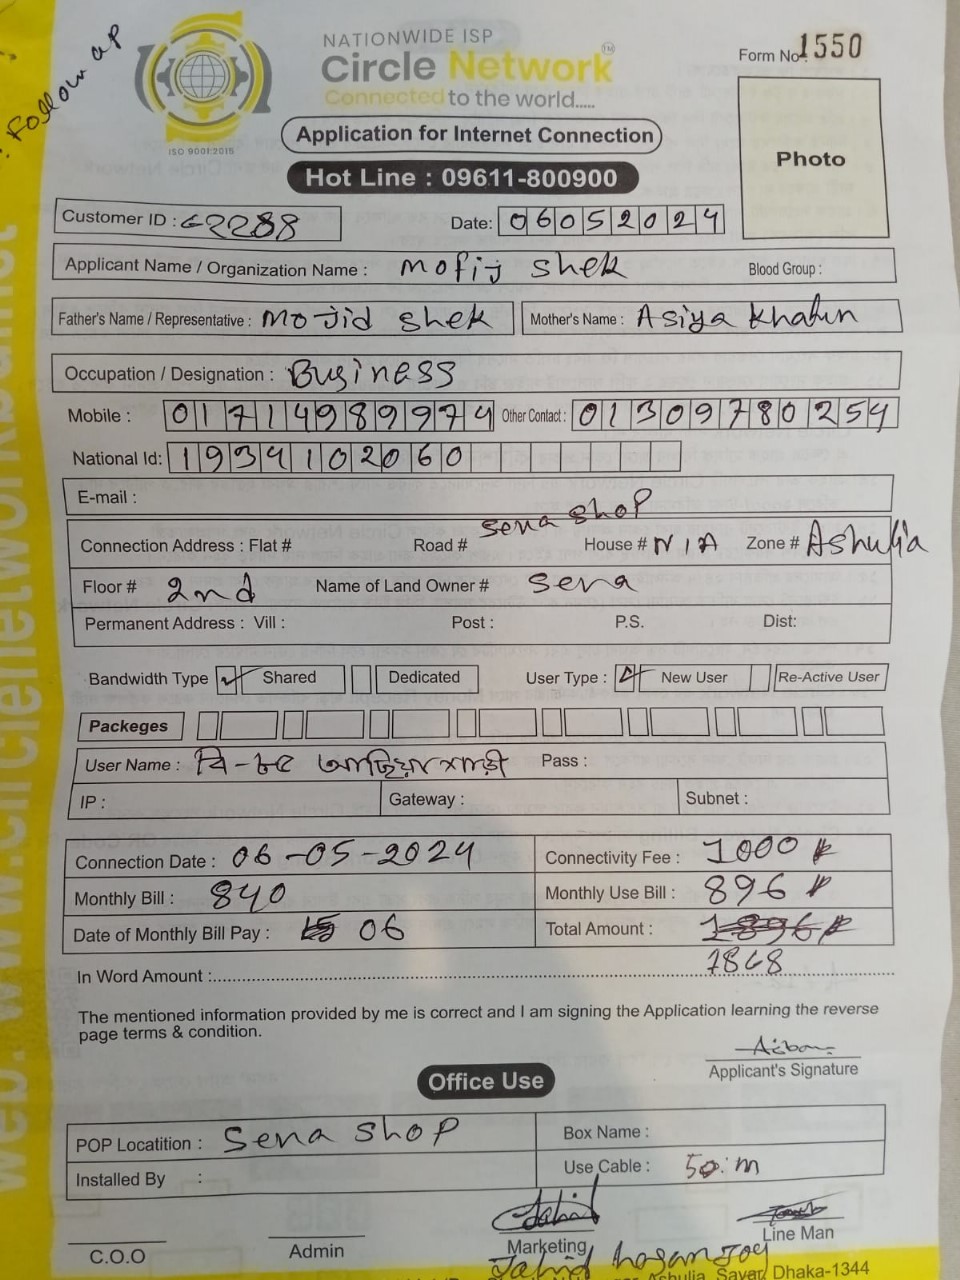 Follow up
NATIONWIDE ISP
Circle Network TM
Connected to the world.....
ISO 9001:2015
Form No. 1550
Application for Internet Connection
Photo
Hot Line : 09611-800900
Customer ID : 62288 Date: 06052024
Applicant Name / Organization Name : Mofij Shek Blood Group :
Father's Name / Representative : Mojid Shek Mother's Name : Asiya Khatun
Occupation / Designation : Business
Mobile : 01714989974 Other Contact : 01309780254
National Id: 1934102060
E-mail :
Connection Address : Flat # Road # Sena Shop House # N/A Zone # Ashulia
Floor # 2nd Name of Land Owner # Sena
Permanent Address : Vill : Post : P.S. Dist:
Bandwidth Type ✓ Shared Dedicated User Type : ✓ New User Re-Active User
Packeges
User Name : Pass :
IP : Gateway : Subnet :
Connection Date : 06-05-2024 Connectivity Fee : 1000
Monthly Bill : 840 Monthly Use Bill : 896
Date of Monthly Bill Pay : 06 Total Amount : 1896
1868
In Word Amount :
The mentioned information provided by me is correct and I am signing the Application learning the reverse
page terms & condition.
Applicant's Signature
Office Use
POP Locatition : Sena Shop Box Name :
Installed By : Use Cable : 50 m
C.O.O Admin Marketing Line Man
Jahid hasan Joy
Ashulia, Savar, Dhaka-1344
web: www.circlenetworkbd.net